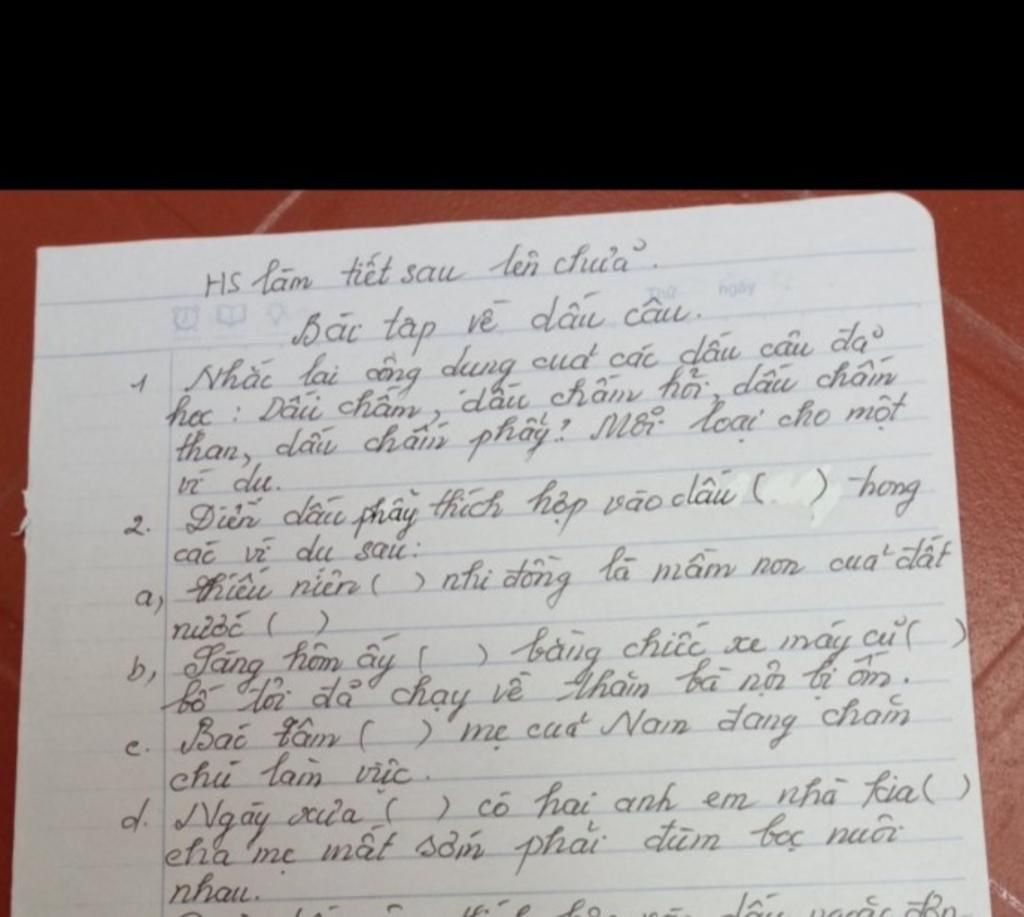 HS làm tiết sau lên chữa.
Thứ ngày
Bài tập về dấu câu.
1 Nhắc lại công dụng của các dấu câu đã
học : Dấu chấm, dấu chấm hỏi, dấu chấm
than, dấu chấm phẩy? Mỗi loại cho một
ví dụ.
2. Điền dấu phẩy thích hợp vào dấu ( ) trong
các ví dụ sau:
a, Thiếu niên ( ) nhi đồng là mầm non của đất
nước ( )
b, Sáng hôm ấy ( ) bằng chiếc xe máy cũ ( )
bố tôi đã chạy về thăm bà nội bị ốm.
c. Bác Tâm ( ) mẹ của Nam đang chăm
chú làm việc.
d. Ngày xưa ( ) có hai anh em nhà kia ( )
cha mẹ mất sớm phải đùm bọc nuôi
nhau.